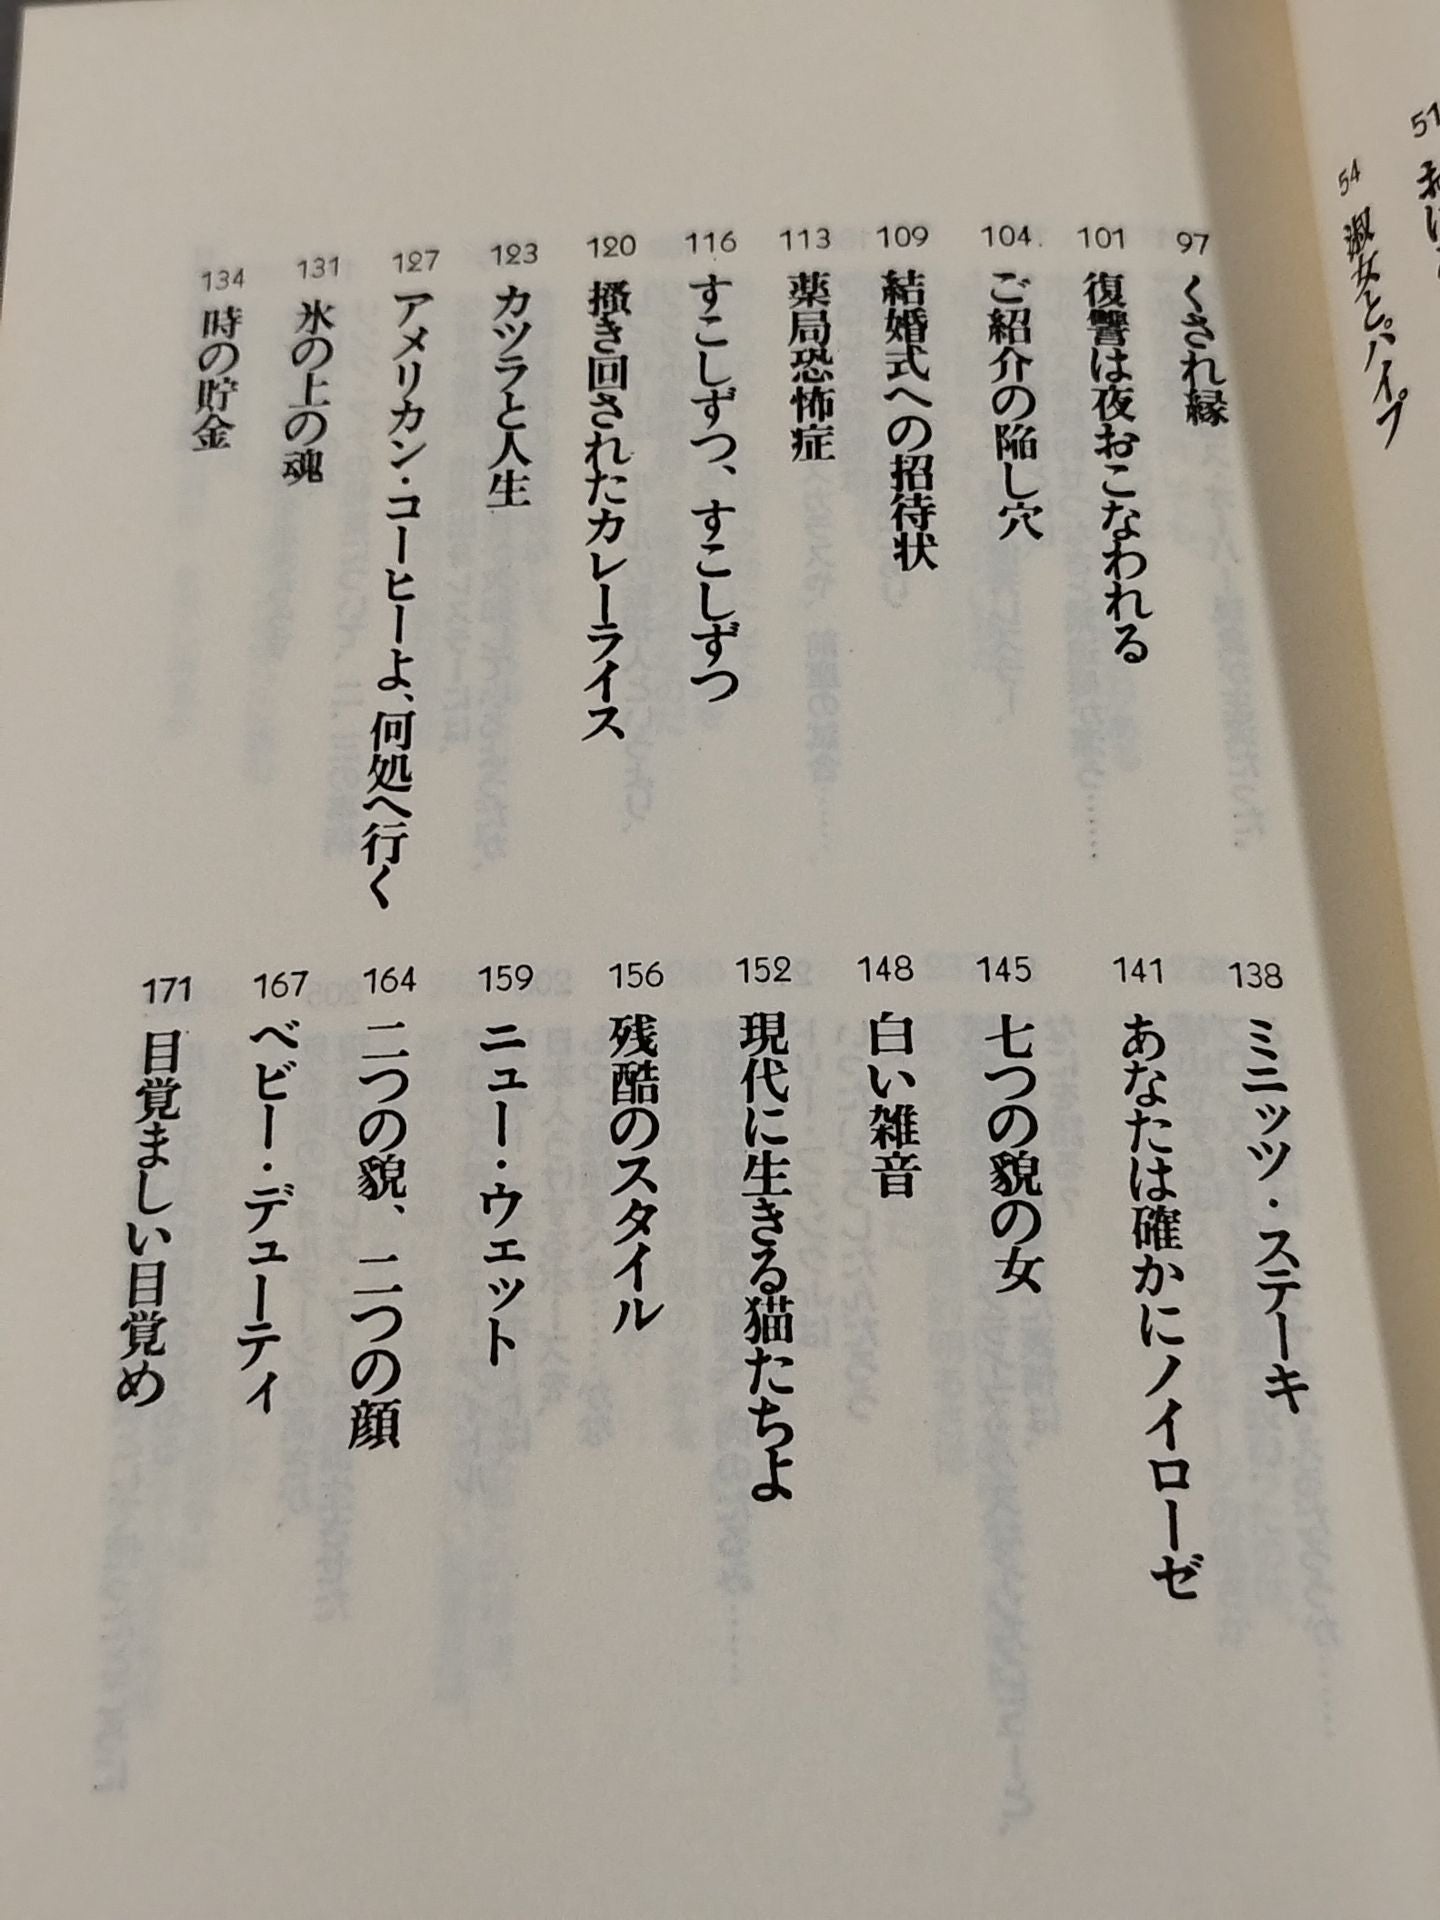 54 淑女とパイプ
97 くされ縁
101 復讐は夜おこなわれる
104 ご紹介の陥し穴
109 結婚式への招待状
113 薬局恐怖症
116 すこしずつ、すこしずつ
120 掻き回されたカレーライス
123 カツラと人生
127 アメリカン・コーヒーよ、何処へ行く
131 氷の上の魂
134 時の貯金
138 ミニッツ・ステーキ
141 あなたは確かにノイローゼ
145 七つの貌の女
148 白い雑音
152 現代に生きる猫たちよ
156 残酷のスタイル
159 ニュー・ウェット
164 二つの貌、二つの顔
167 ベビー・デューティ
171 目覚ましい目覚め